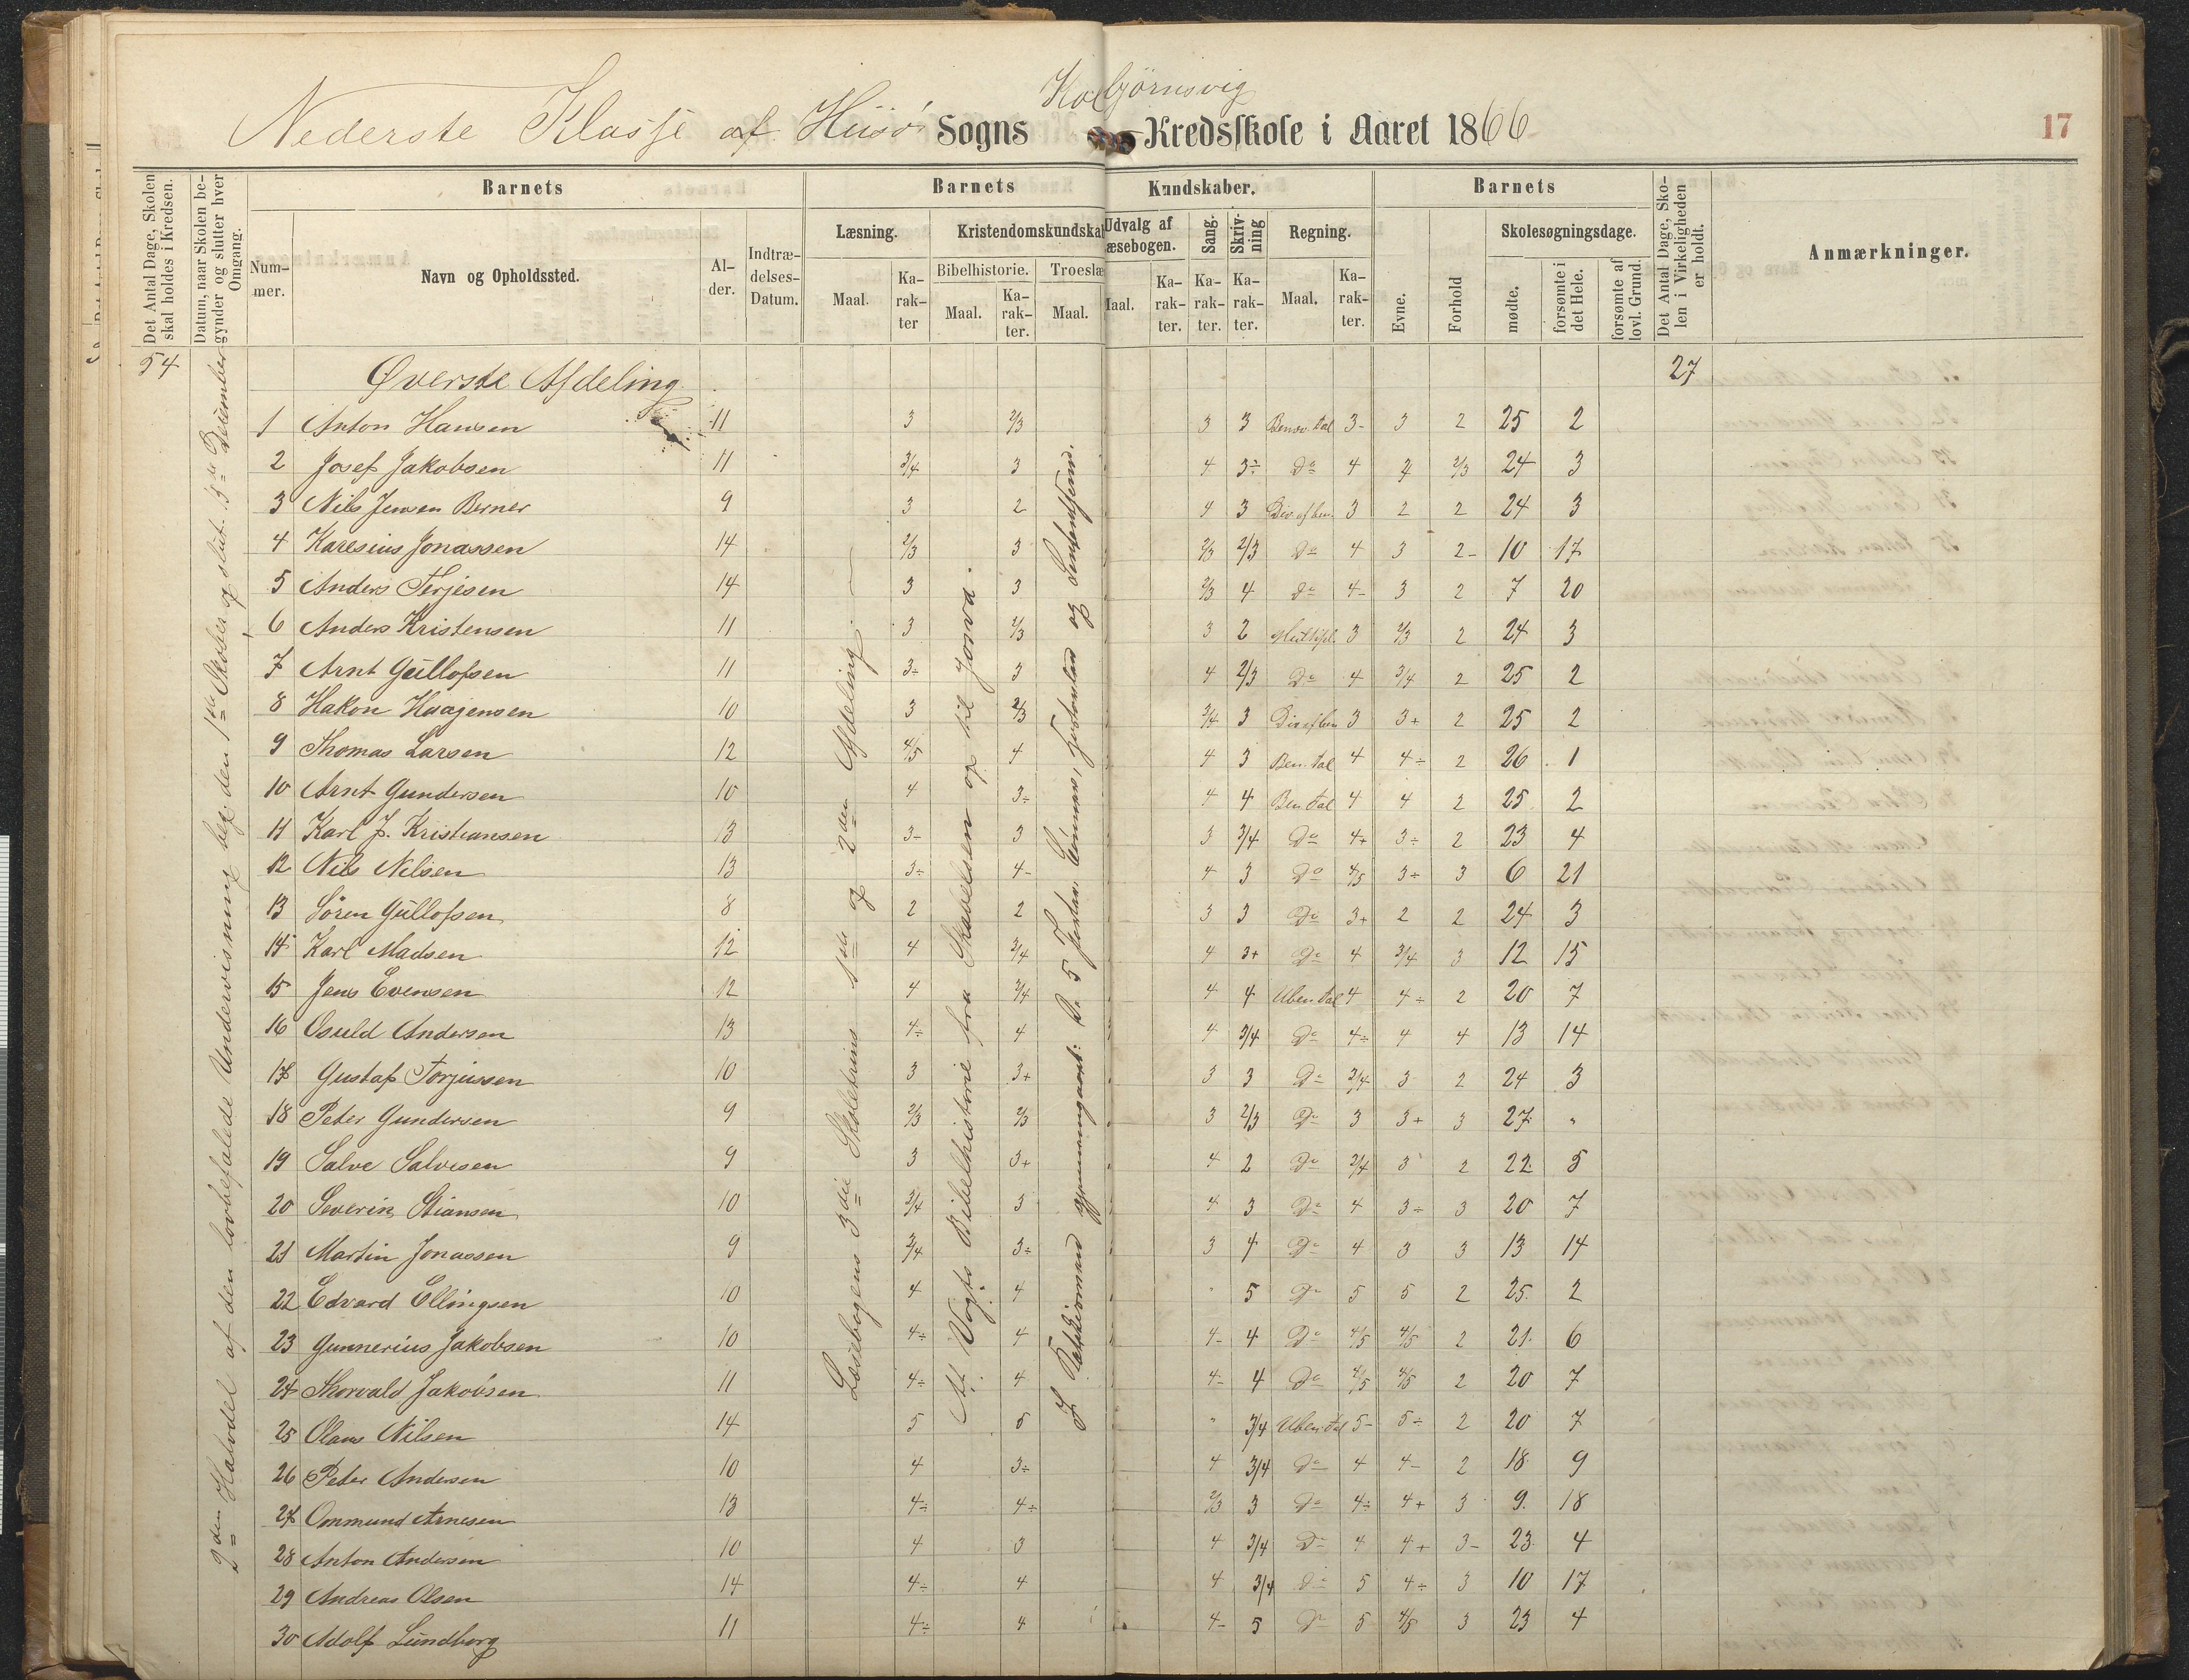 Kolbjörnsvig
Nederste Klasse af Hisö Sogns Kredsskole i Aaret 1866
17
Det Antal Dage, Skolen skal holdes i Kredsen.
Datum, naar Skolen begynder og slutter hver Omgang.
Barnets
Nummer.
Navn og Opholdssted.
Alder.
Indtrædelses-Datum.
Barnets
Læsning.
Maal.
Karakter
Kristendomskundska
Bibelhistorie.
Maal.
Karakter.
Troeslæ
Maal.
Kundskaber.
Udvalg af
æsebogen.
Maal.
Karakter.
Sang.
Karakter.
Skrivning
Karakter.
Regning.
Maal.
Karakter.
Barnets
Evne.
Forhold
Skolesøgningsdage.
mødte.
forsømte i det Hele.
forsømte af lovl. Grund.
Det Antal Dage, Skolen i Virkeligheden er holdt.
Anmærkninger.
54
27
2den Halvdel af den lovbefalede Undervisning beg. den 1ste Oktober og slut. 15de December
Øverste Afdeling
Læsebogens 3die Skoletrins 1ste og 2den Afdeling.
Af Vogts Bibelhistorie fra Skabelsen op til Josva.
I Katekismus gjennemgaaet: De 5 Parter,
1 Anton Hansen 11 3 2/3 3 3 Benæv. Tal 3- 3 2 25 2
2 Josef Jakobsen 11 3/4 3 4 3÷ Do 4 4 2/3 24 3
3 Nils Jensen Berner 9 3 2 4 3 Div. af ben. 3 2 2 24 3
4 Karesius Jonassen 14 2/3 3 2/3 2/3 Do 4 3 2- 10 17
5 Anders Terjesen 14 3 3 2/3 4 Do 4- 3 2 7 20
6 Anders Kristensen 11 3 2/3 3 2 Multipl. 3 2/3 2 24 3
7 Arnt Gullofsen 11 3÷ 3 4 2/3 Do 4 3/4 2 25 2
8 Hakon Haagensen 10 3 2/3 3/4 3 Div af ben 3 3+ 2 25 2
9 Thomas Larsen 12 4/5 4 4 3 Ben. Tal 4 4÷ 2 26 1
10 Arnt Gundersen 10 4 3÷ 4 4 Ben Tal 4 4 2 25 2
11 Karl J. Kristiansen 13 3- 3 3 3/4 Do 4+ 3÷ 2 23 4
12 Nils Nilsen 13 3÷ 4- 4 3 Do 4/5 3÷ 3 6 21
13 Sören Gullofsen 8 2 2 3 3 Do 3+ 2 2 24 3
14 Karl Madsen 12 4 3/4 4 3+ Do 4 3/4 3 12 15
15 Jens Evensen 12 4 3/4 4 4 Uben Tal 4 4÷ 2 20 7
16 Osuld Andersen 13 4÷ 4 4 3/4 Do 4÷ 4 4 13 14
17 Gustaf Torjussen 10 3 3+ 3 3 Do 3/4 3 2 24 3
18 Peter Gundersen 9 2/3 2/3 3 2/3 Do 3 3+ 3 27 "
19 Salve Salvesen 9 3 3+ 4 2 Do 3/4 3 2 22 5
20 Severin Stiansen 10 3/4 3 4 3 Do 4 3÷ 3 20 7
21 Martin Jonassen 9 3/4 3÷ 3 4 Do 4 3 3 13 14
22 Edvard Ellingsen 10 4 4 " 5 Do 5 5 2 25 2
23 Gunnerius Jakobsen 10 4÷ 4 4- 4 Do 4/5 4/5 2 21 6
24 Thorvald Jakobsen 11 4÷ 4 4- 4 Do 4/5 4/5 2 20 7
25 Olaus Nilsen 14 5 5 " 3/4 Uben Tal 5- 5÷ 2 20 7
26 Peter Andersen 10 4 3÷ 4 3/4 Do 4 4- 2 18 9
27 Ommund Arnesen 13 4÷ 4÷ 2/3 3 Do 4÷ 4+ 3 9 18
28 Anton Andersen 10 4 3 4 3/4 Do 4 4+ 3- 23 4
29 Andreas Olsen 14 4÷ 4 4 3/4 Do 5 4÷ 3 10 17
30 Adolf Lundborg 11 4÷ 4 4- 5 Do 5 4/5 3 23 4